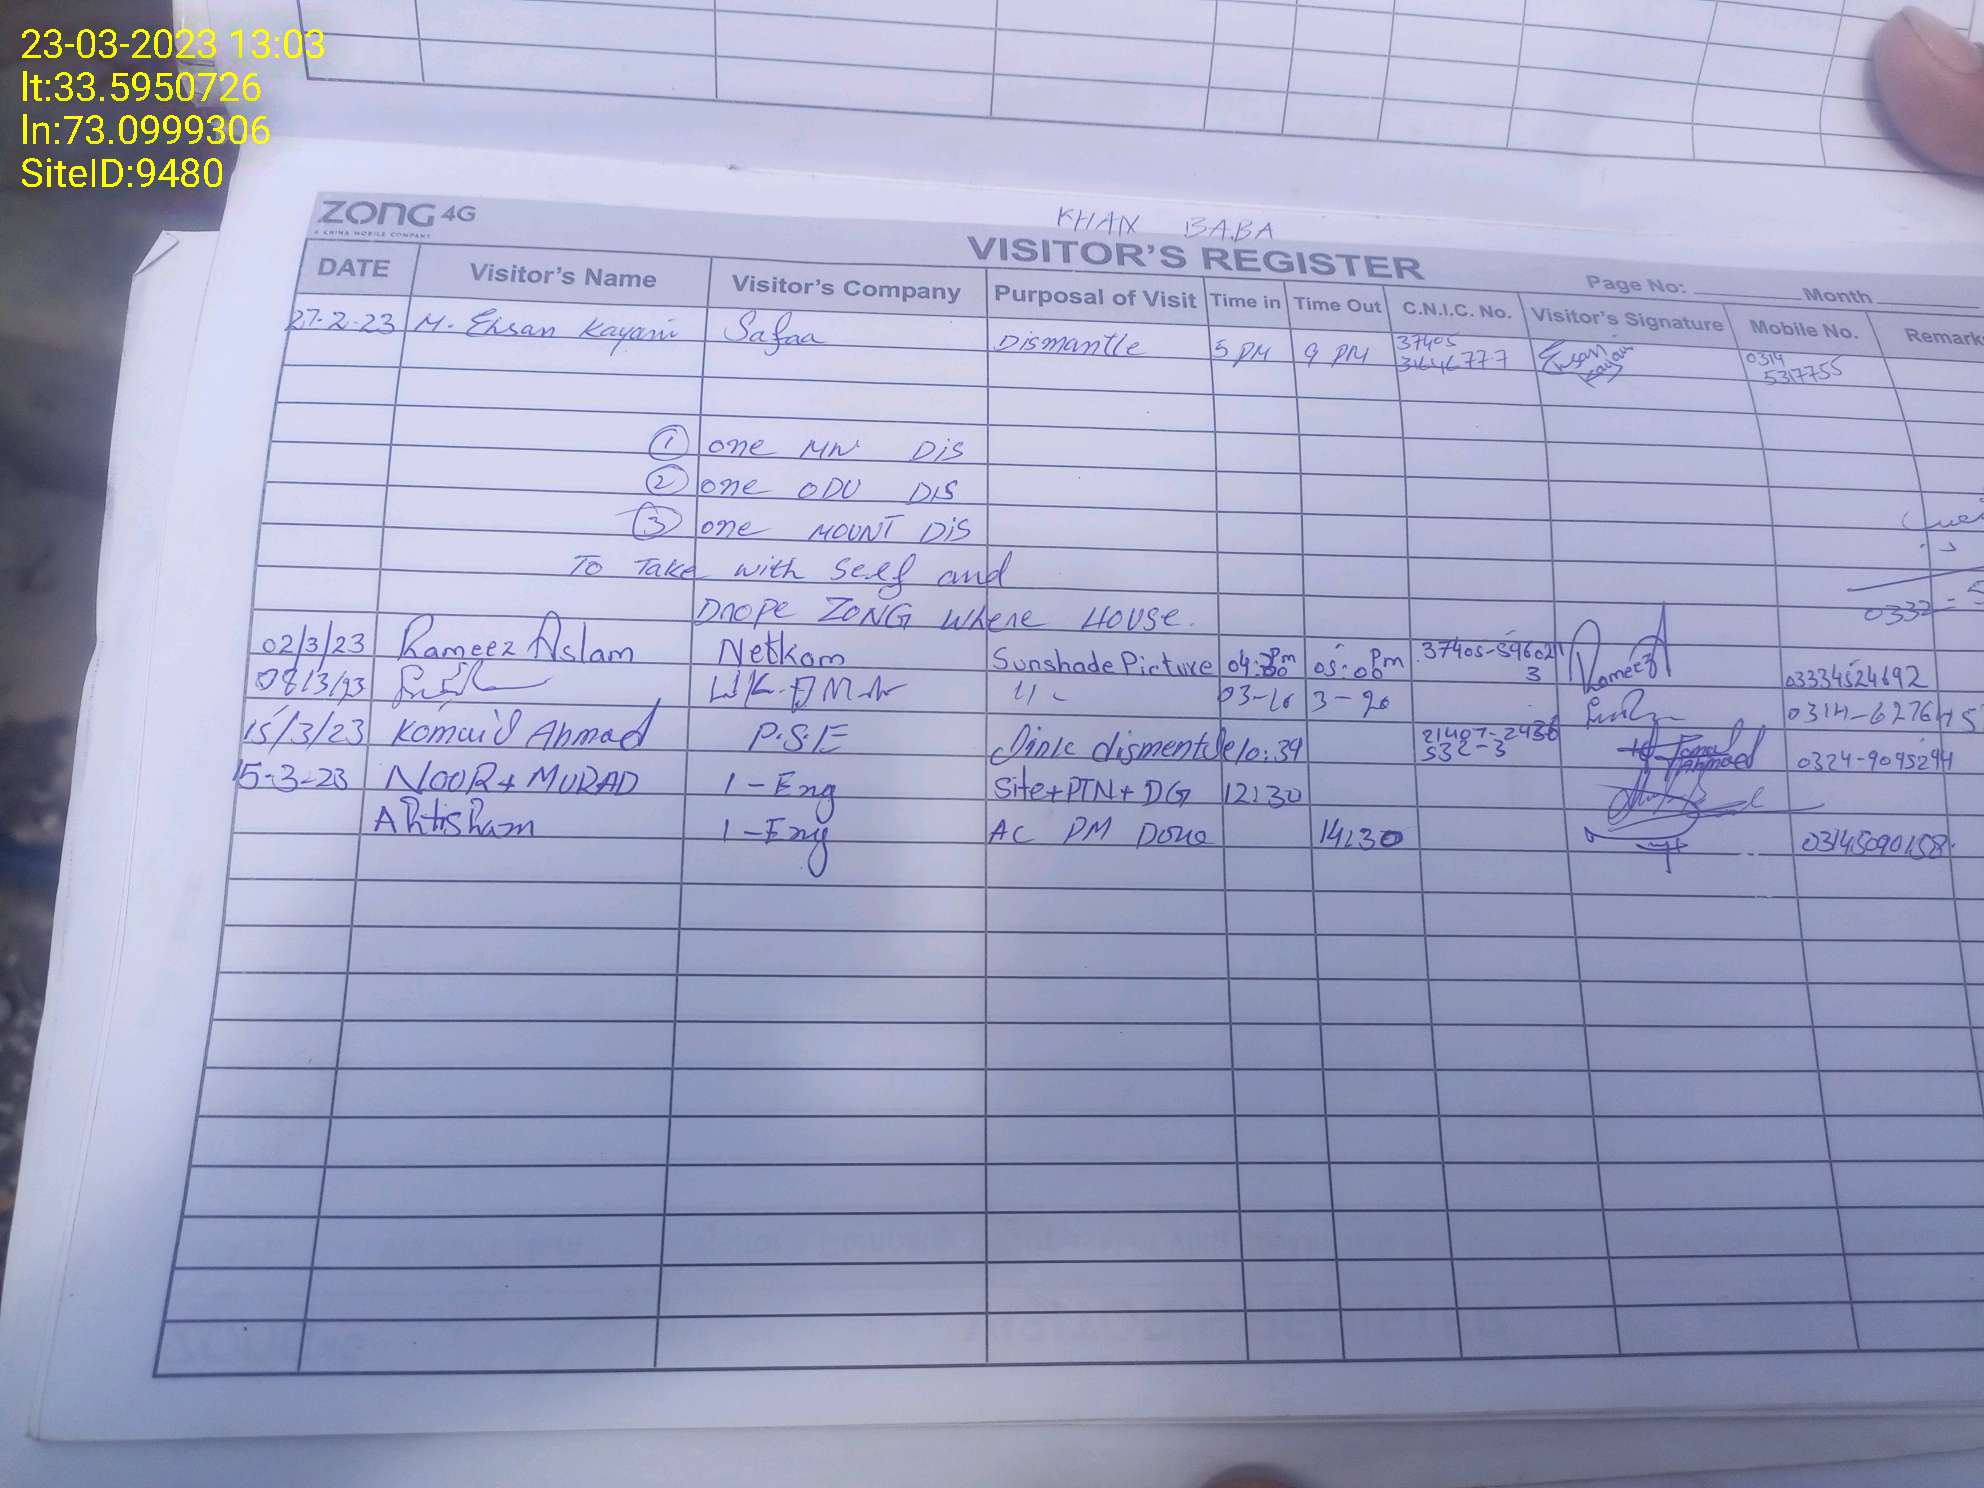 23-03-2023 13:03
lt:33.5950726
ln:73.0999306
SiteID:9480
ZONG 4G
A CHINA MOBILE COMPANY
KHAN BABA
VISITOR'S REGISTER
Page No: Month
DATE Visitor's Name Visitor's Company Purposal of Visit Time in Time Out C.N.I.C. No. Visitor's Signature Mobile No. Remark
27-2-23 M. Ehsan Kayani Safaa Dismantle 5 PM 9 PM 37405 0314
5317755
① one MW DIS
② one ODU DIS
③ one MOUNT DIS
To Take with Self and
Drope ZONG Where House.
0332-
02/3/23 Rameez Aslam Netkom Sunshade Picture 05:00 Pm Rameez 03334524692
08/3/23 03-10 3-20
15/3/23 Komail Ahmad P.S.E Link dismentele 10:39 0324-9095294
15-3-23 NOOR+MURAD I-Eng Site+PTN+DG 12:30
Ahtisham I-Eng AC PM Done 14:30 03145090158